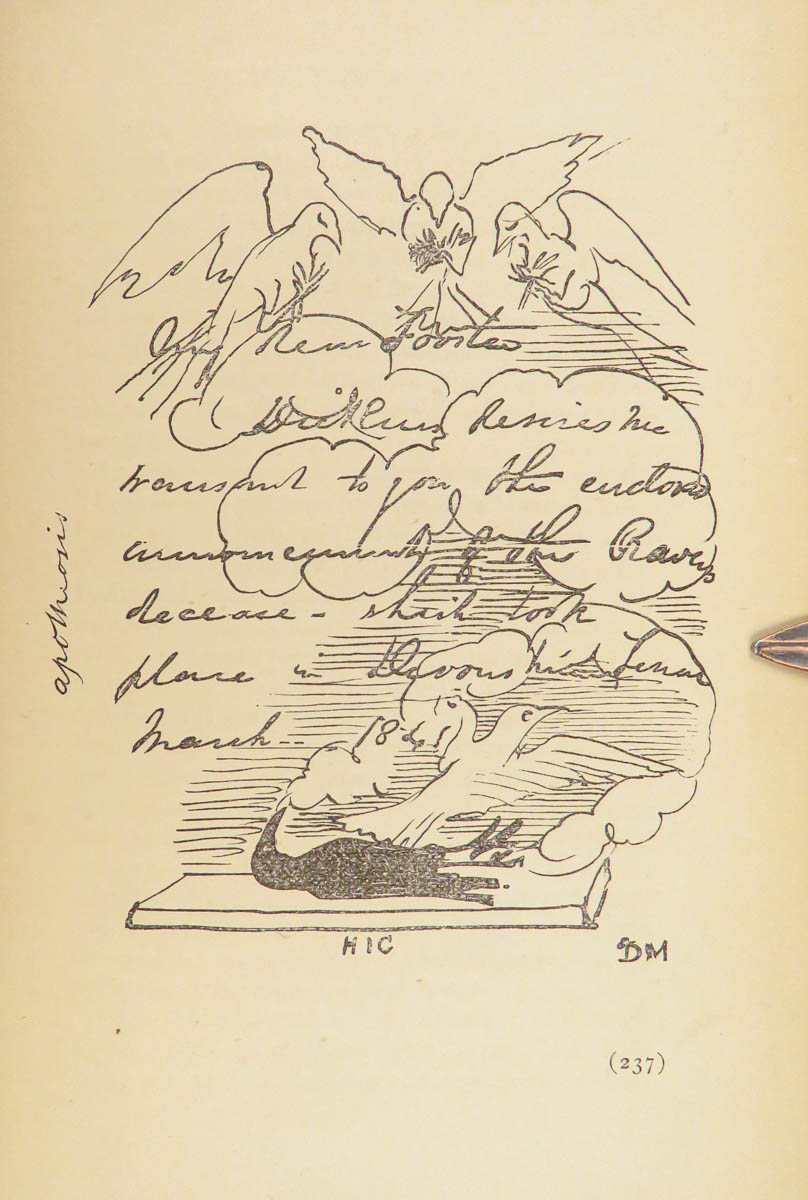 apotheosis
My dear Forster
Dickens desires me
transmit to you the enclosed
announcement of the Raven's
decease - which took
place in Devonshire Terrace
March -- 1841
HIC
DM
(237)